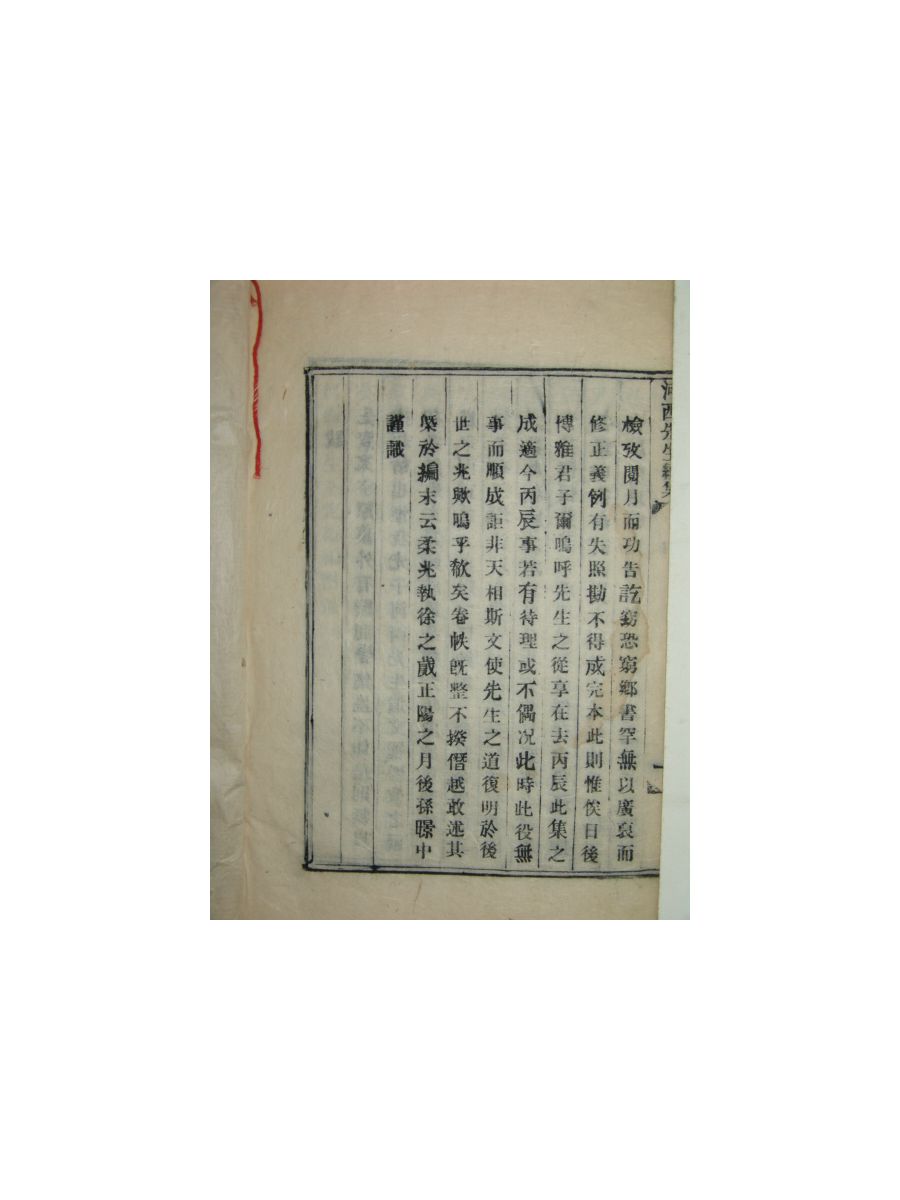 河西先生續集
檢攷閱月而功告訖窃恐窮鄉書罕無以廣裒而
修正義例有失照勘不得成完本此則惟俟日後
博雅君子爾嗚呼先生之從享在去丙辰此集之
成適今丙辰事若有待理或不偶况此時此役無
事而順成詎非天相斯文使先生之道復明於後
世之兆歟嗚乎欷矣卷帙旣整不揆僭越敢述其
槩於編末云柔兆執徐之歲正陽之月後孫暻中
謹識